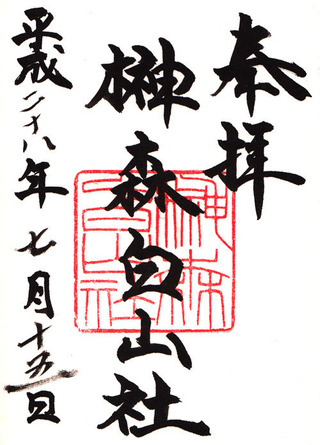 奉拝
榊森白山社
平成二十八年七月十五日